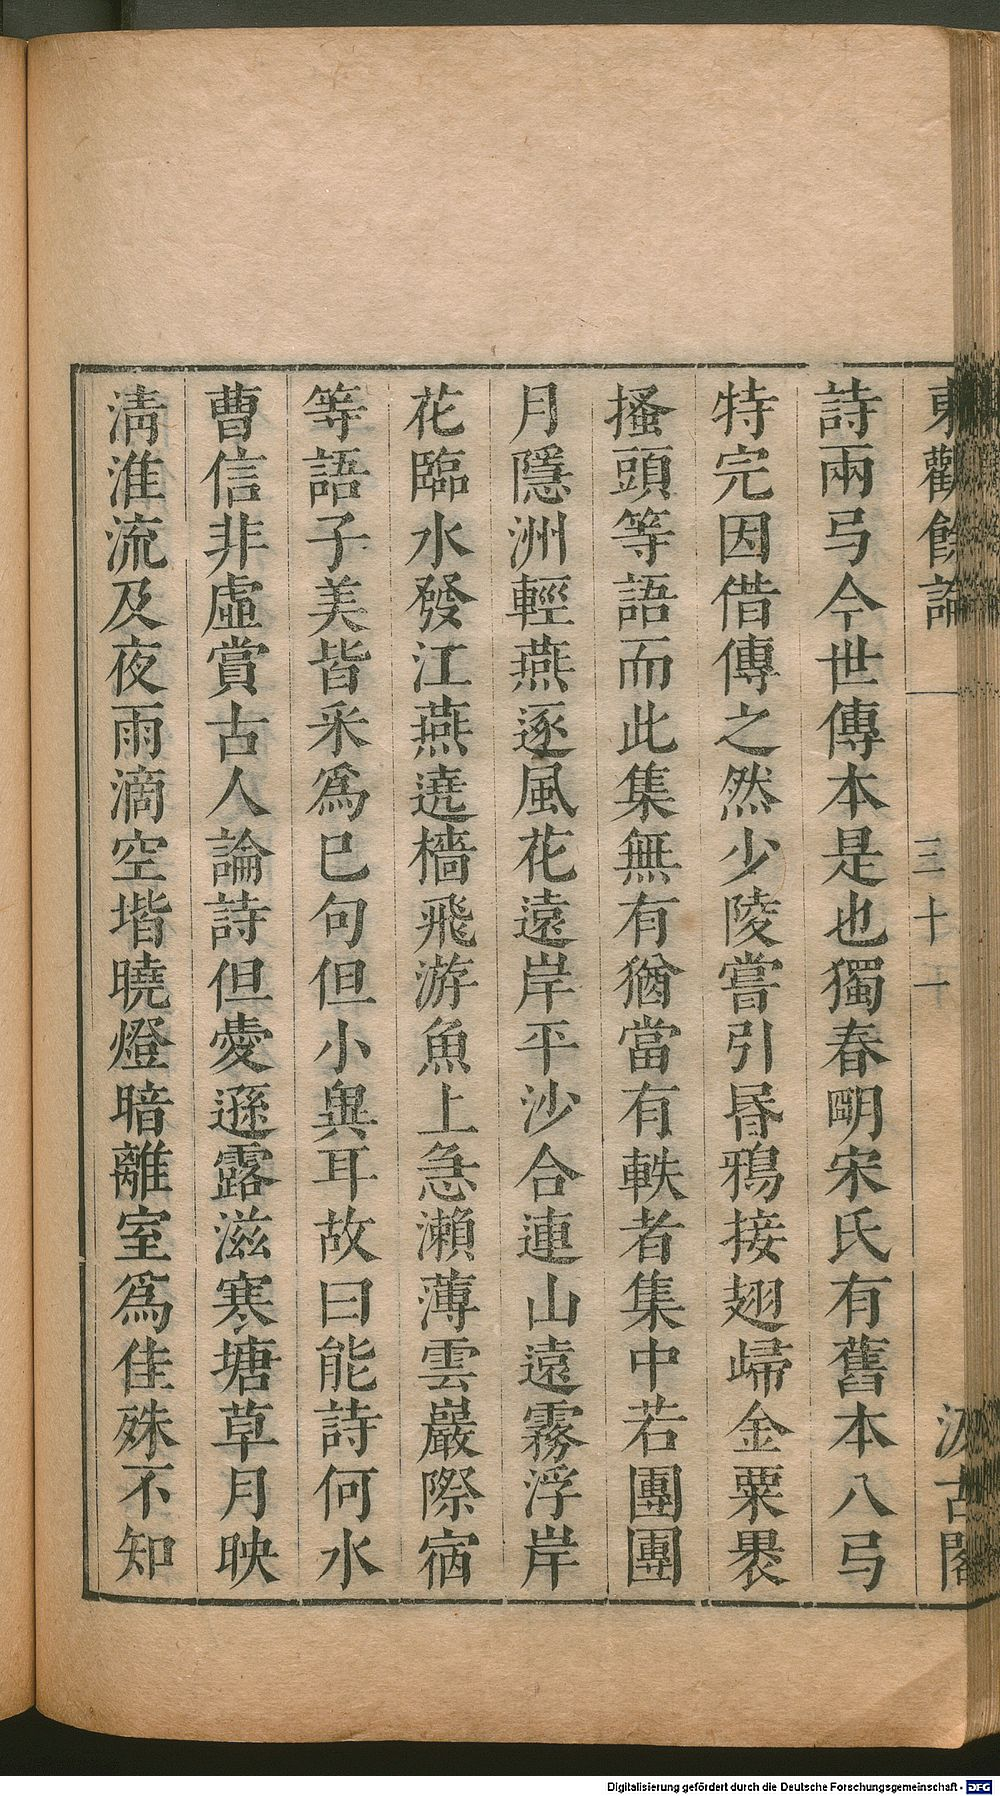 東觀餘論
三十一
汲古閣
詩兩弓今世傳本是也獨春明宋氏有舊本八弓
特完因借傳之然少陵嘗引昏鴉接翅歸金粟裹
搔頭等語而此集無有猶當有軼者集中若團團
月隱洲輕燕逐風花遠岸平沙合連山遠霧浮岸
花臨水發江燕遶檣飛游魚上急瀨薄雲巖際宿
等語子美皆采爲己句但小異耳故曰能詩何水
曹信非虛賞古人論詩但愛遜露滋寒塘草月映
淸淮流及夜雨滴空堦曉燈暗離室爲佳殊不知
Digitalisierung gefördert durch die Deutsche Forschungsgemeinschaft - DFG